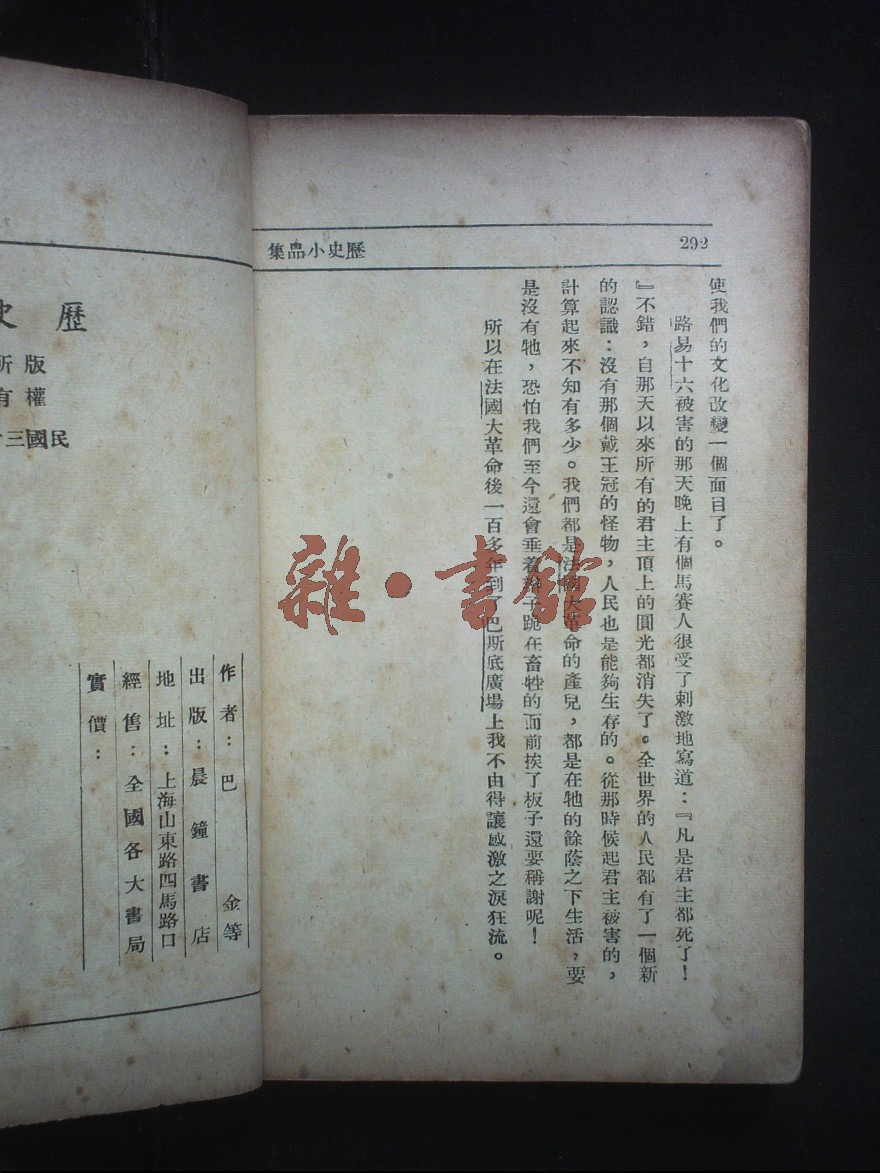 292
歷史小品集
使我們的文化改變一個面目了。
路易十六被害的那天晚上有個馬賽人很受了刺激地寫道：『凡是君主都死了！
』不錯，自那天以來所有的君主頂上的圓光都消失了。全世界的人民都有了一個新
的認識：沒有那個戴王冠的怪物，人民也是能夠生存的。從那時候起君主被害的，
計算起來不知有多少。我們都是法國大革命的產兒，都是在牠的餘蔭之下生活，要
是沒有牠，恐怕我們至今還會垂着辮子跪在畜牲的面前挨了板子還要稱謝呢！
所以在法國大革命後一百多年到了巴斯底廣場上我不由得讓感激之淚狂流。
雜·書館
歷史
版權所有
民國三十
作者：巴金等
出版：晨鐘書店
地址：上海山東路四馬路口
經售：全國各大書局
實價：